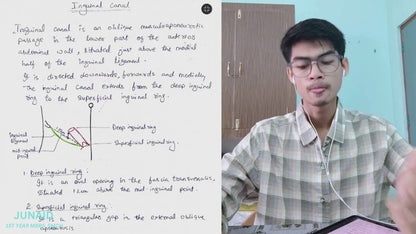 Inguinal canal
Inguinal canal is an oblique musculoaponeurotic
passage in the lower part of the anterior
abdominal wall, situated just above the medial
half of the inguinal ligament.
It is directed downwards, forwards and medially.
The inguinal canal extends from the deep inguinal
ring to the superficial inguinal ring.
Deep inguinal ring
Inguinal
ligament
Superficial inguinal ring.
mid inguinal
point
1. Deep inguinal ring:
It is an oval opening in the fascia transversalis,
situated 1.2cm above the mid inguinal point.
2. Superficial inguinal ring
It is a triangular gap in the external oblique
aponeurosis
JUNAID
1ST YEAR MBBS